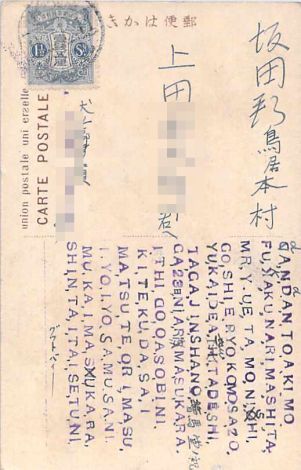 郵便はかき
union postale
CARTE POSTALE
1½ Sn
坂田郡鳥居本村
上田
君
DANDAN,TO,AKI,MO
FU,KAKU,NARI,MASHITA,
MR,Y,UE,TA,MO,NI,SHI,
GO,SHI,E,RYO,KO,MO,SAZO,
YU,KA,I,DE,A,TTA,DE,SHI,
TACA,JINSHANO
CA,23日NI,ARI,MASUKARA,
ITHI,GO,OASOBI,NI,
KI,TE,KU,DA,SA,I
MATSU,TE,ORI,MASU,
I,YO,I,YO,SA,MU,SA,NI,
MU,KA,I,MA,SU,KARA,
SHIN,TA,I,TAI,SE,TU,NI,